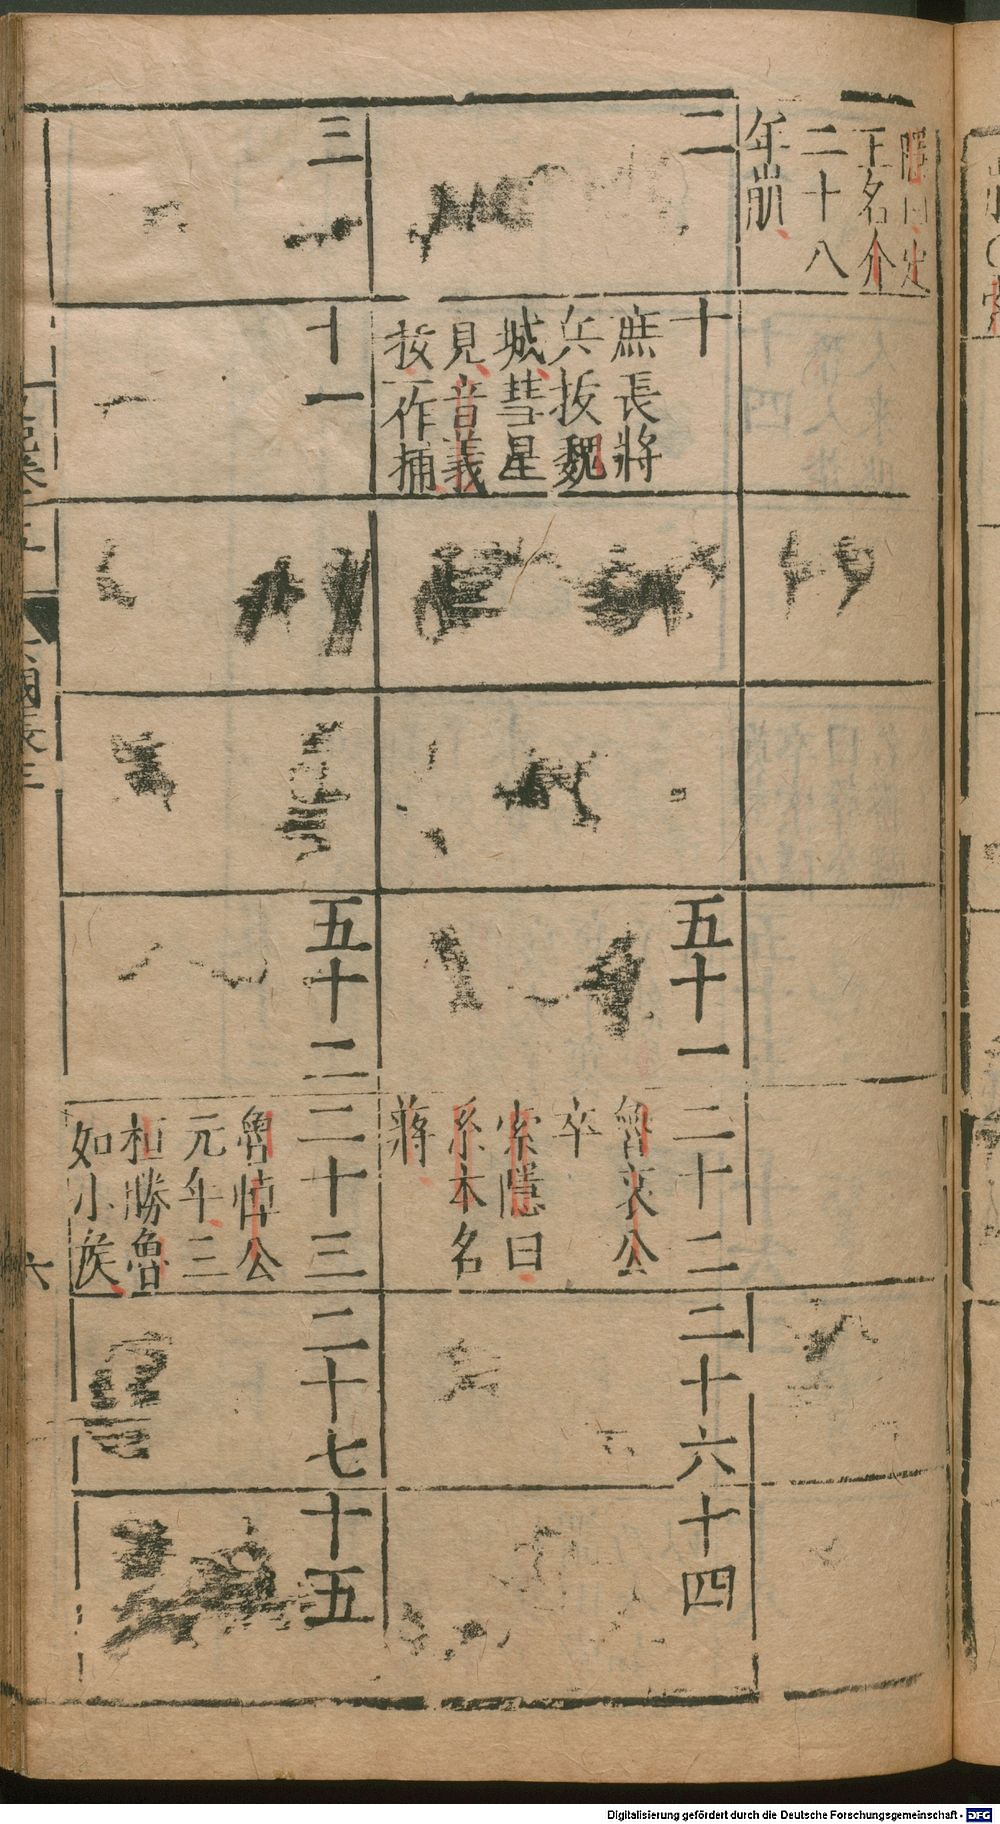 隱曰定
王名介
二十八
年崩
二
十
庶長將
兵拔魏
城彗星
見音義
拔一作捕
五十一
二十二
魯哀公
卒
索隱曰
系本名
蔣
二十六
十四
三
十一
五十二
二十三
魯悼公
元年三
桓勝魯
如小侯
二十七
十五
六國表三
六
Digitalisierung gefördert durch die Deutsche Forschungsgemeinschaft - DFG